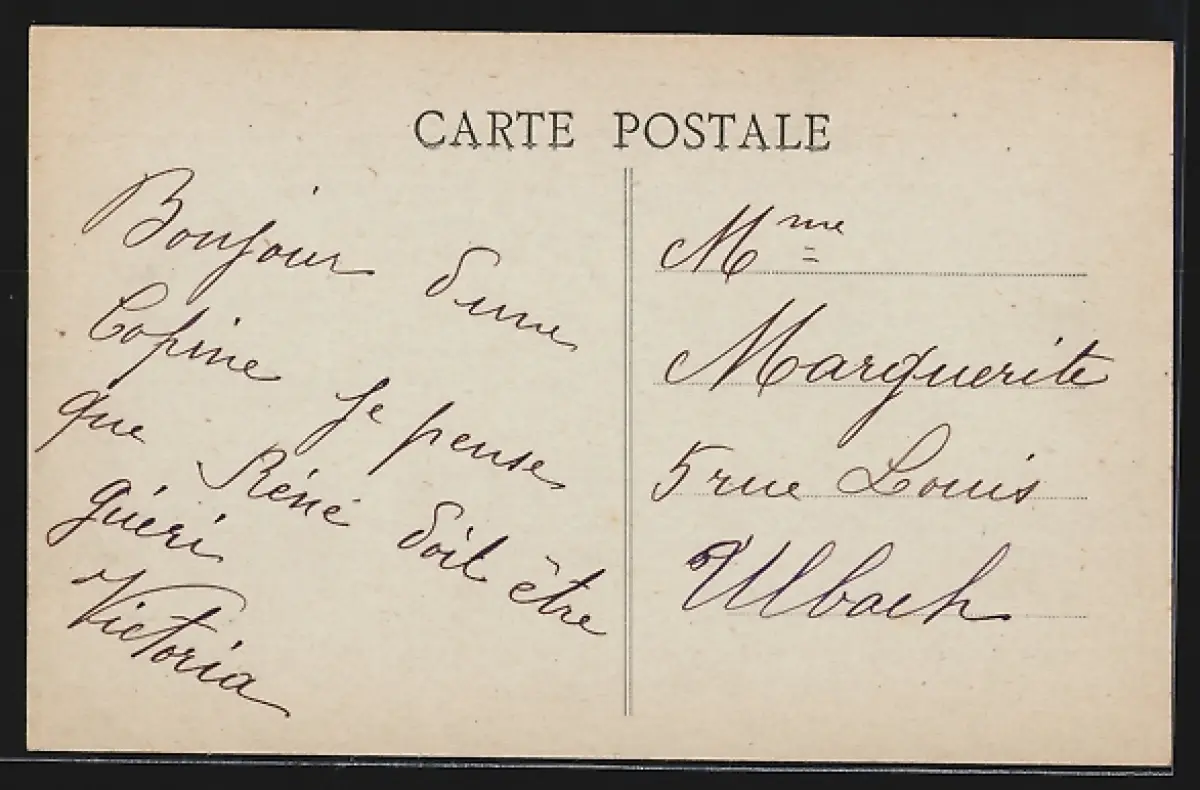 CARTE POSTALE
Bonjour d'une
Copine Je pense
que Réné doit être
guéri
Victoria
Mme
Marguerite
5 rue Louis
Ulbach